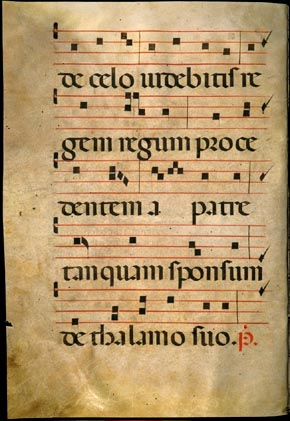 de celo uidebitis re
gem regum proce
dentem a patre
tanquam sponsum
de thalamo suo. p̄.